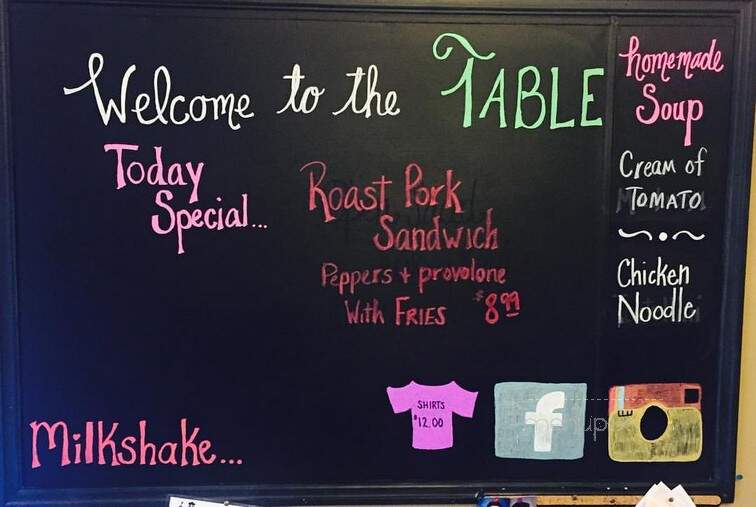 Welcome to the TABLE
Today
Special...
Roast Pork
Sandwich
Peppers + provolone
With FRIES $8.99
homemade
Soup
Cream of
TOMATO
Chicken
Noodle
Milkshake...
SHIRTS
$12.00
f